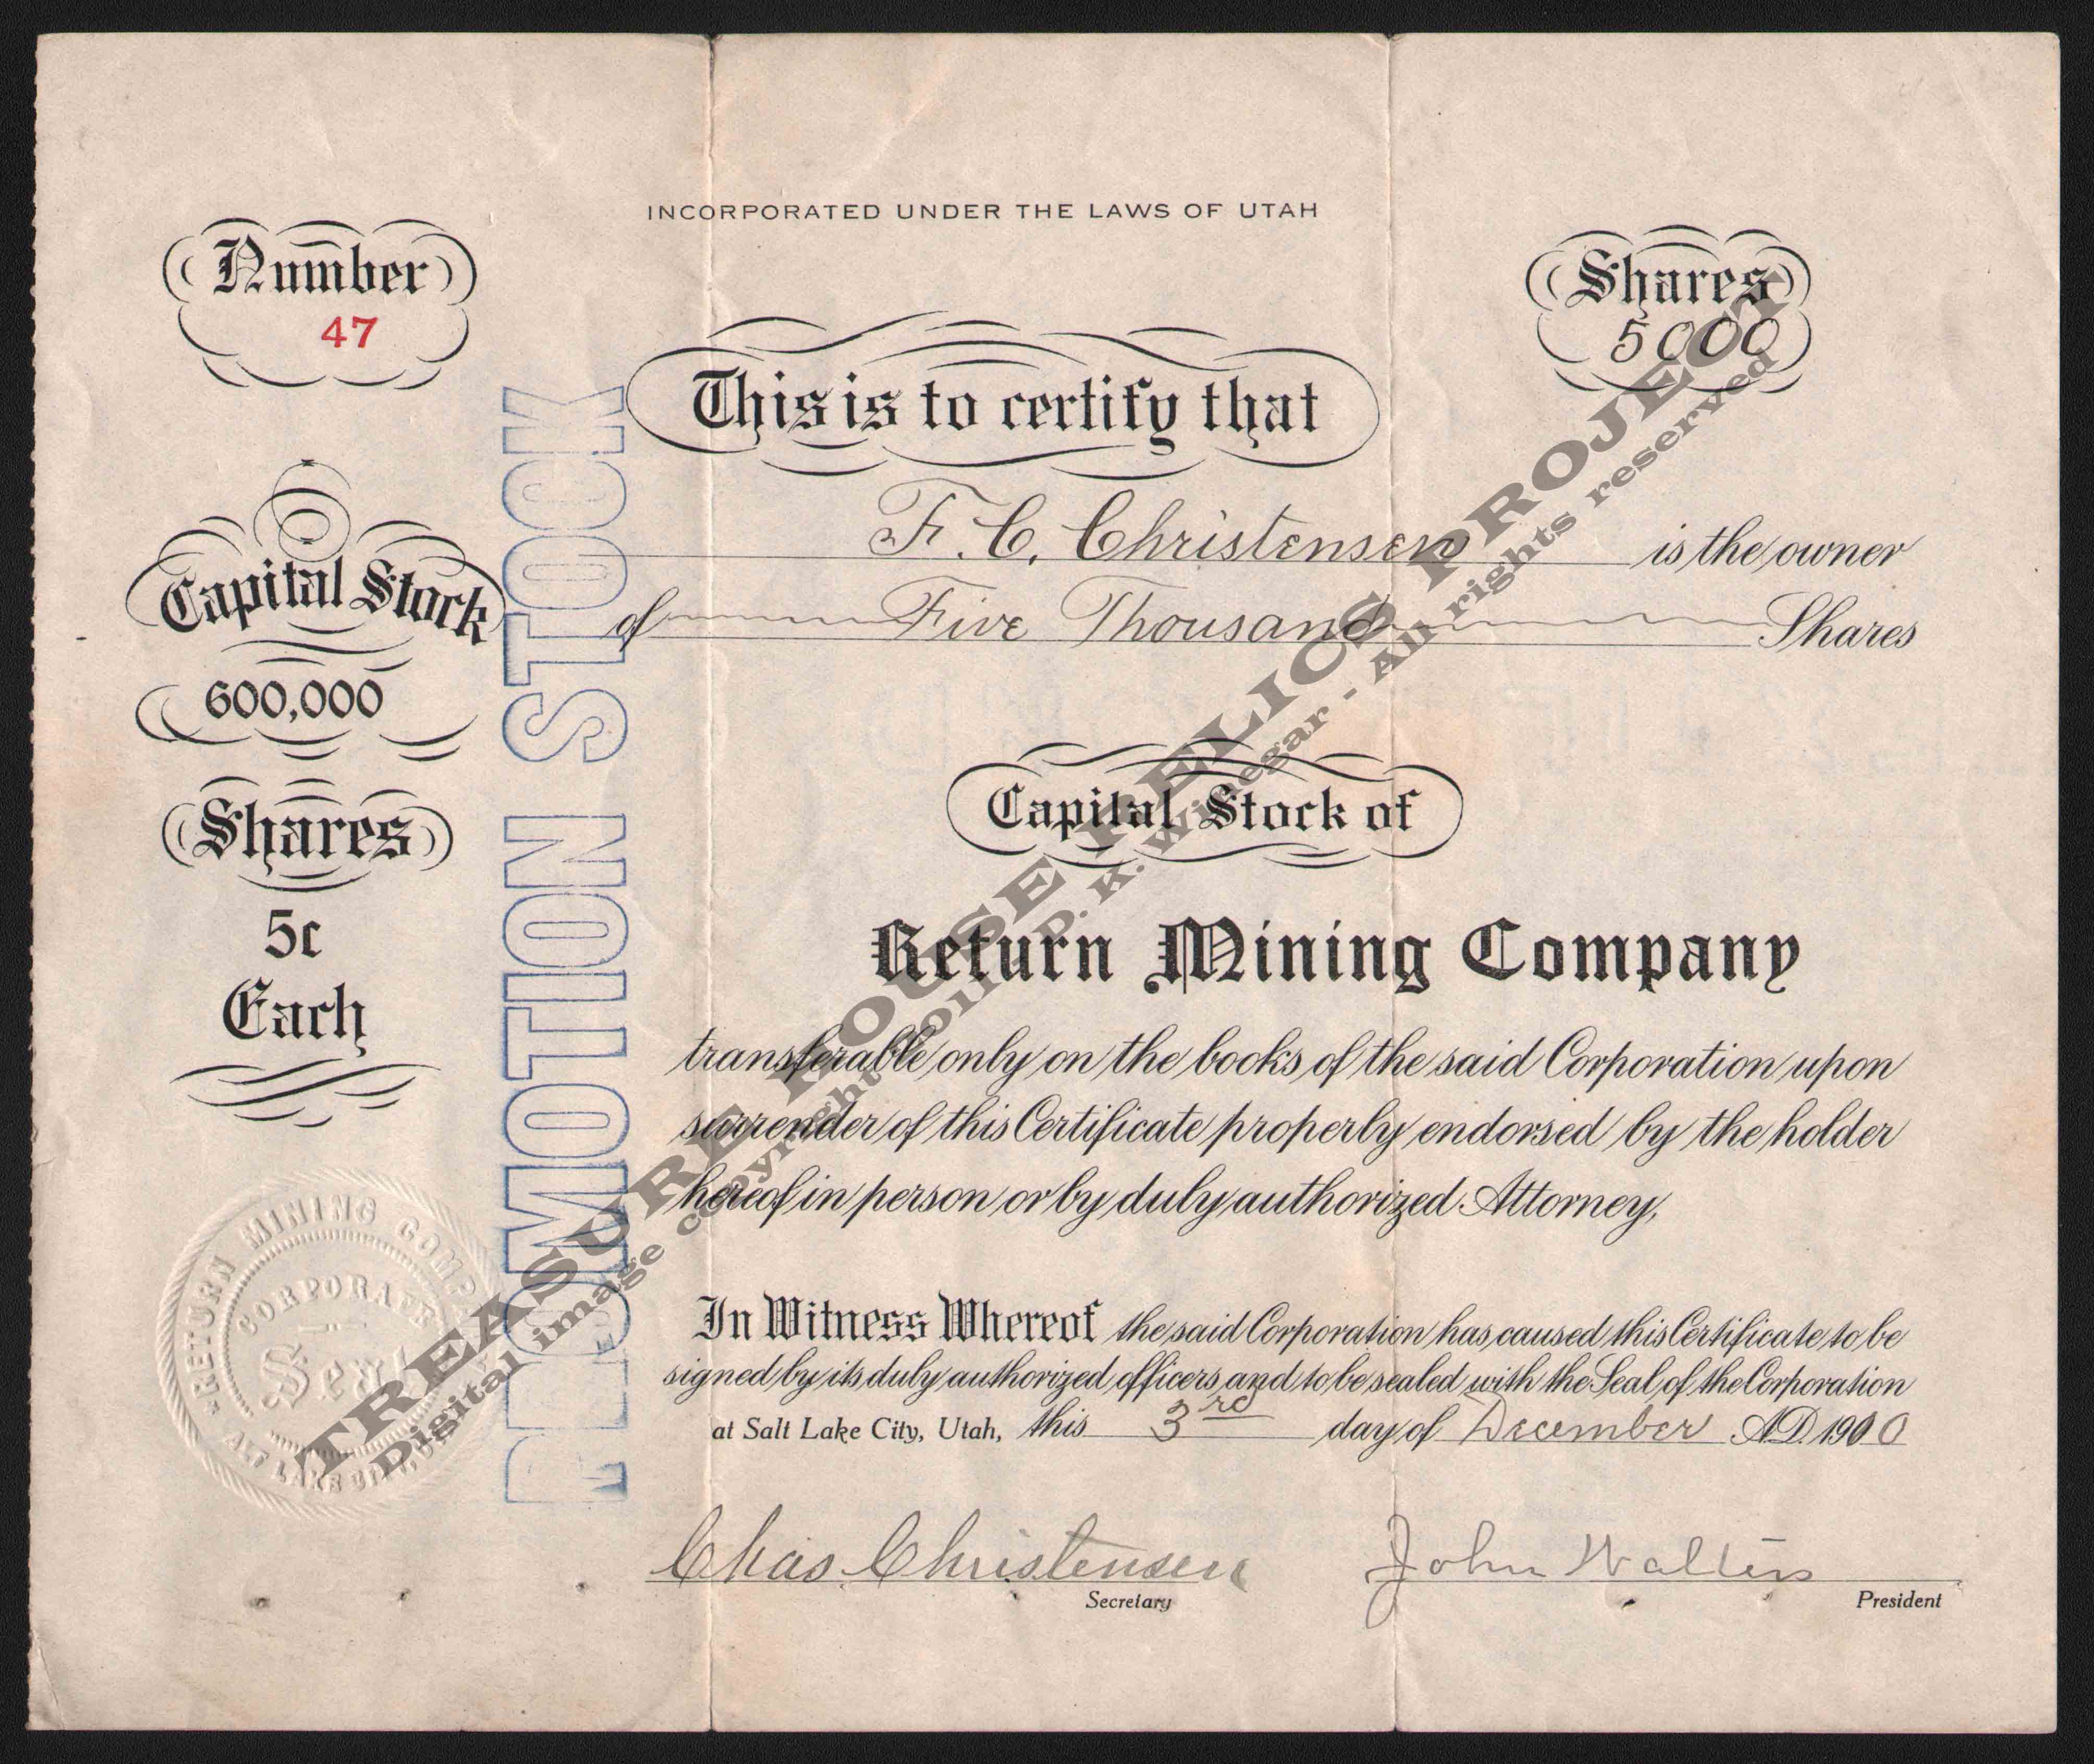 INCORPORATED UNDER THE LAWS OF UTAH
Number
47
Shares
5000
This is to certify that
F. C. Christensen is the owner
of Five Thousand Shares
Capital Stock
600,000
Shares
5c
Each
PROMOTION STOCK
Capital Stock of
Return Mining Company
transferable only on the books of the said Corporation upon
surrender of this Certificate properly endorsed by the holder
hereof in person or by duly authorized Attorney,
In Witness Whereof the said Corporation has caused this Certificate to be
signed by its duly authorized officers and to be sealed with the Seal of the Corporation
at Salt Lake City, Utah, this 3rd day of December A.D. 1900
Chas. Christensen
Secretary
John Walters
President
RETURN MINING COMPA
CORPORATE
Seal
TREASURE HOUSE RELICS PROJECT
Digital image copyright coll. D. K. Winegar - All rights reserved